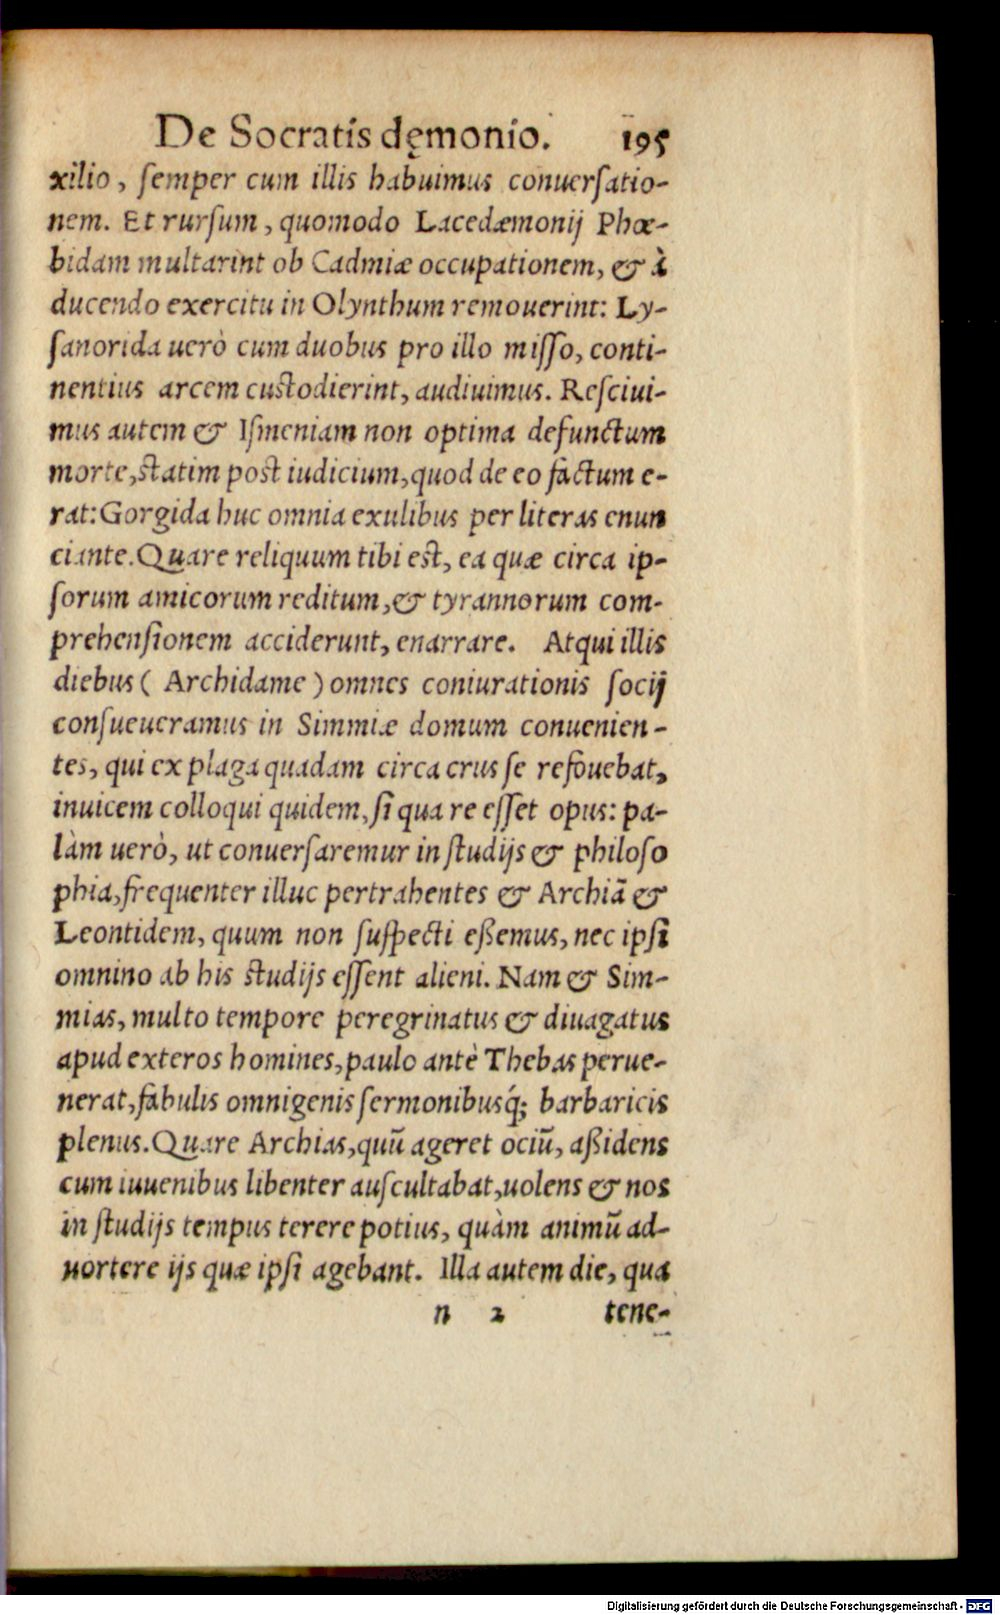 De Socratis dęmonio. 195
xilio, ſemper cum illis habuimus conuerſatio-
nem. Et rurſum, quomodo Lacedæmonij Phœ-
bidam multarint ob Cadmiæ occupationem, & à
ducendo exercitu in Olynthum remouerint: Ly-
ſanorida uerò cum duobus pro illo miſſo, conti-
nentius arcem cuſtodierint, audiuimus. Reſciui-
mus autem & Iſmeniam non optima defunctum
morte, ſtatim poſt iudicium, quod de eo factum e-
rat: Gorgida huc omnia exulibus per literas enun
ciante. Quare reliquum tibi eſt, ea quæ circa ip-
ſorum amicorum reditum, & tyrannorum com-
prehenſionem acciderunt, enarrare. Atqui illis
diebus ( Archidame ) omnes coniurationis ſocij
conſueueramus in Simmiæ domum conuenien-
tes, qui ex plaga quadam circa crus ſe refouebat,
inuicem colloqui quidem, ſi qua re eſſet opus: pa-
làm uerò, ut conuerſaremur in ſtudijs & philoſo
phia, frequenter illuc pertrahentes & Archiā &
Leontidem, quum non ſuſpecti eßemus, nec ipſi
omnino ab his ſtudijs eſſent alieni. Nam & Sim-
mias, multo tempore peregrinatus & diuagatus
apud exteros homines, paulo antè Thebas perue-
nerat, fabulis omnigenis ſermonibusq́; barbaricis
plenus. Quare Archias, quū ageret ociū, aßidens
cum iuuenibus libenter auſcultabat, uolens & nos
in ſtudijs tempus terere potius, quàm animū ad-
uortere ijs quæ ipſi agebant. Illa autem die, qua
n 2 tene-
Digitalisierung gefördert durch die Deutsche Forschungsgemeinschaft - DFG